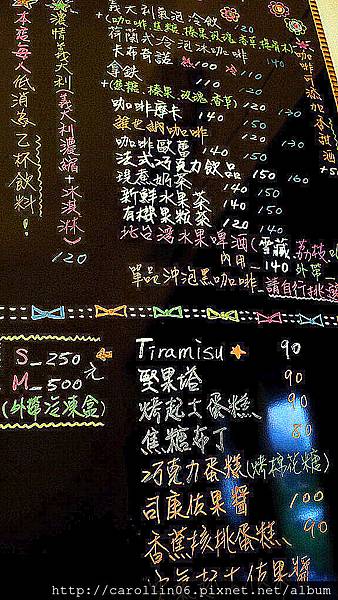 本店每人低消為乙杯飲料!
濃情義大利(義大利濃縮+冰淇淋)
120
義大利氣泡冷飲
+(咖啡.焦糖.榛果.玫瑰.香草
荷蘭式冷泡冰咖啡
卡布奇諾 120 140
拿鉄 110 130
+(焦糖.榛果.玫瑰.香草)
咖啡摩卡 140 150
咖啡添加香甜酒
咖啡歐蕾 120
法式巧克力飲品 150 160
140 150
新鮮水果茶 140 150
有機果粒茶 120 140
北台灣水果啤酒(雪藏 荔枝
內用-140 外帶-
單品沖泡黑咖啡-請自行挑選
S_250元
M_500
(外帶冷凍盒)
Tiramisu 90
堅果塔 90
烤起士蛋糕 90
焦糖布丁 80
巧克力蛋糕(烤棉花糖)
司康佐果醬 100
香蕉核桃蛋糕 90
佐果醬
http://carollin06.pixnet.net/album